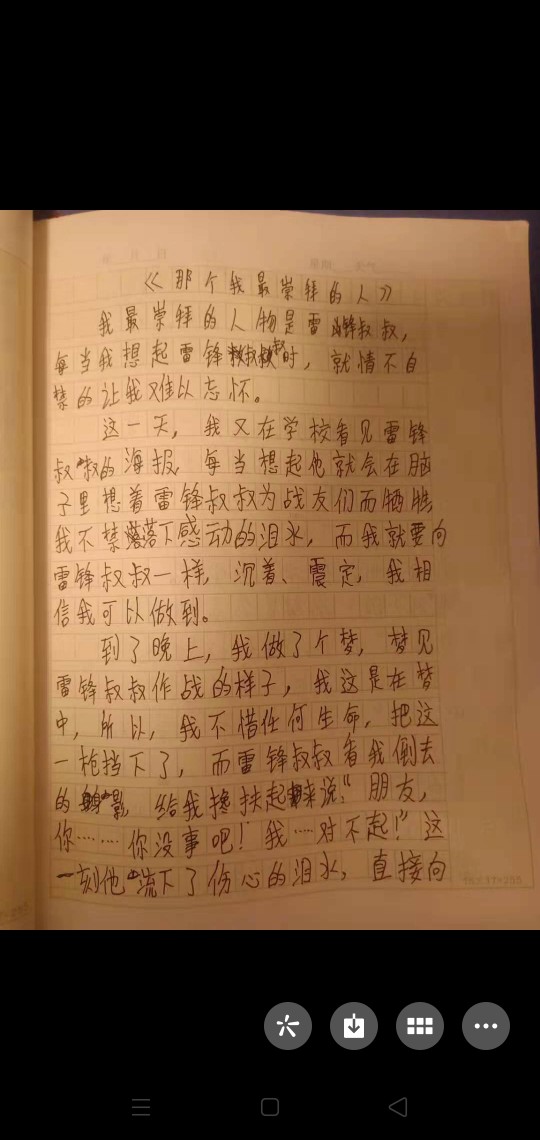 《那个我最崇拜的人》
我最崇拜的人物是雷锋叔叔,
每当我想起雷锋叔叔时,就情不自
禁的让我难以忘怀。
这一天,我又在学校看见雷锋
叔叔的海报,每当想起他就会在脑
子里想着雷锋叔叔为战友们而牺牲,
我不禁落下感动的泪水,而我就要向
雷锋叔叔一样,沉着、震定,我相
信我可以做到。
到了晚上,我做了个梦,梦见
雷锋叔叔作战的样子,我这是在梦
中,所以,我不惜任何生命,把这
一枪挡下了,而雷锋叔叔看我倒去
的影,给我搀扶起来说:“朋友,
你……你没事吧!我……对不起!”这
一刻他流下了伤心的泪水,直接向